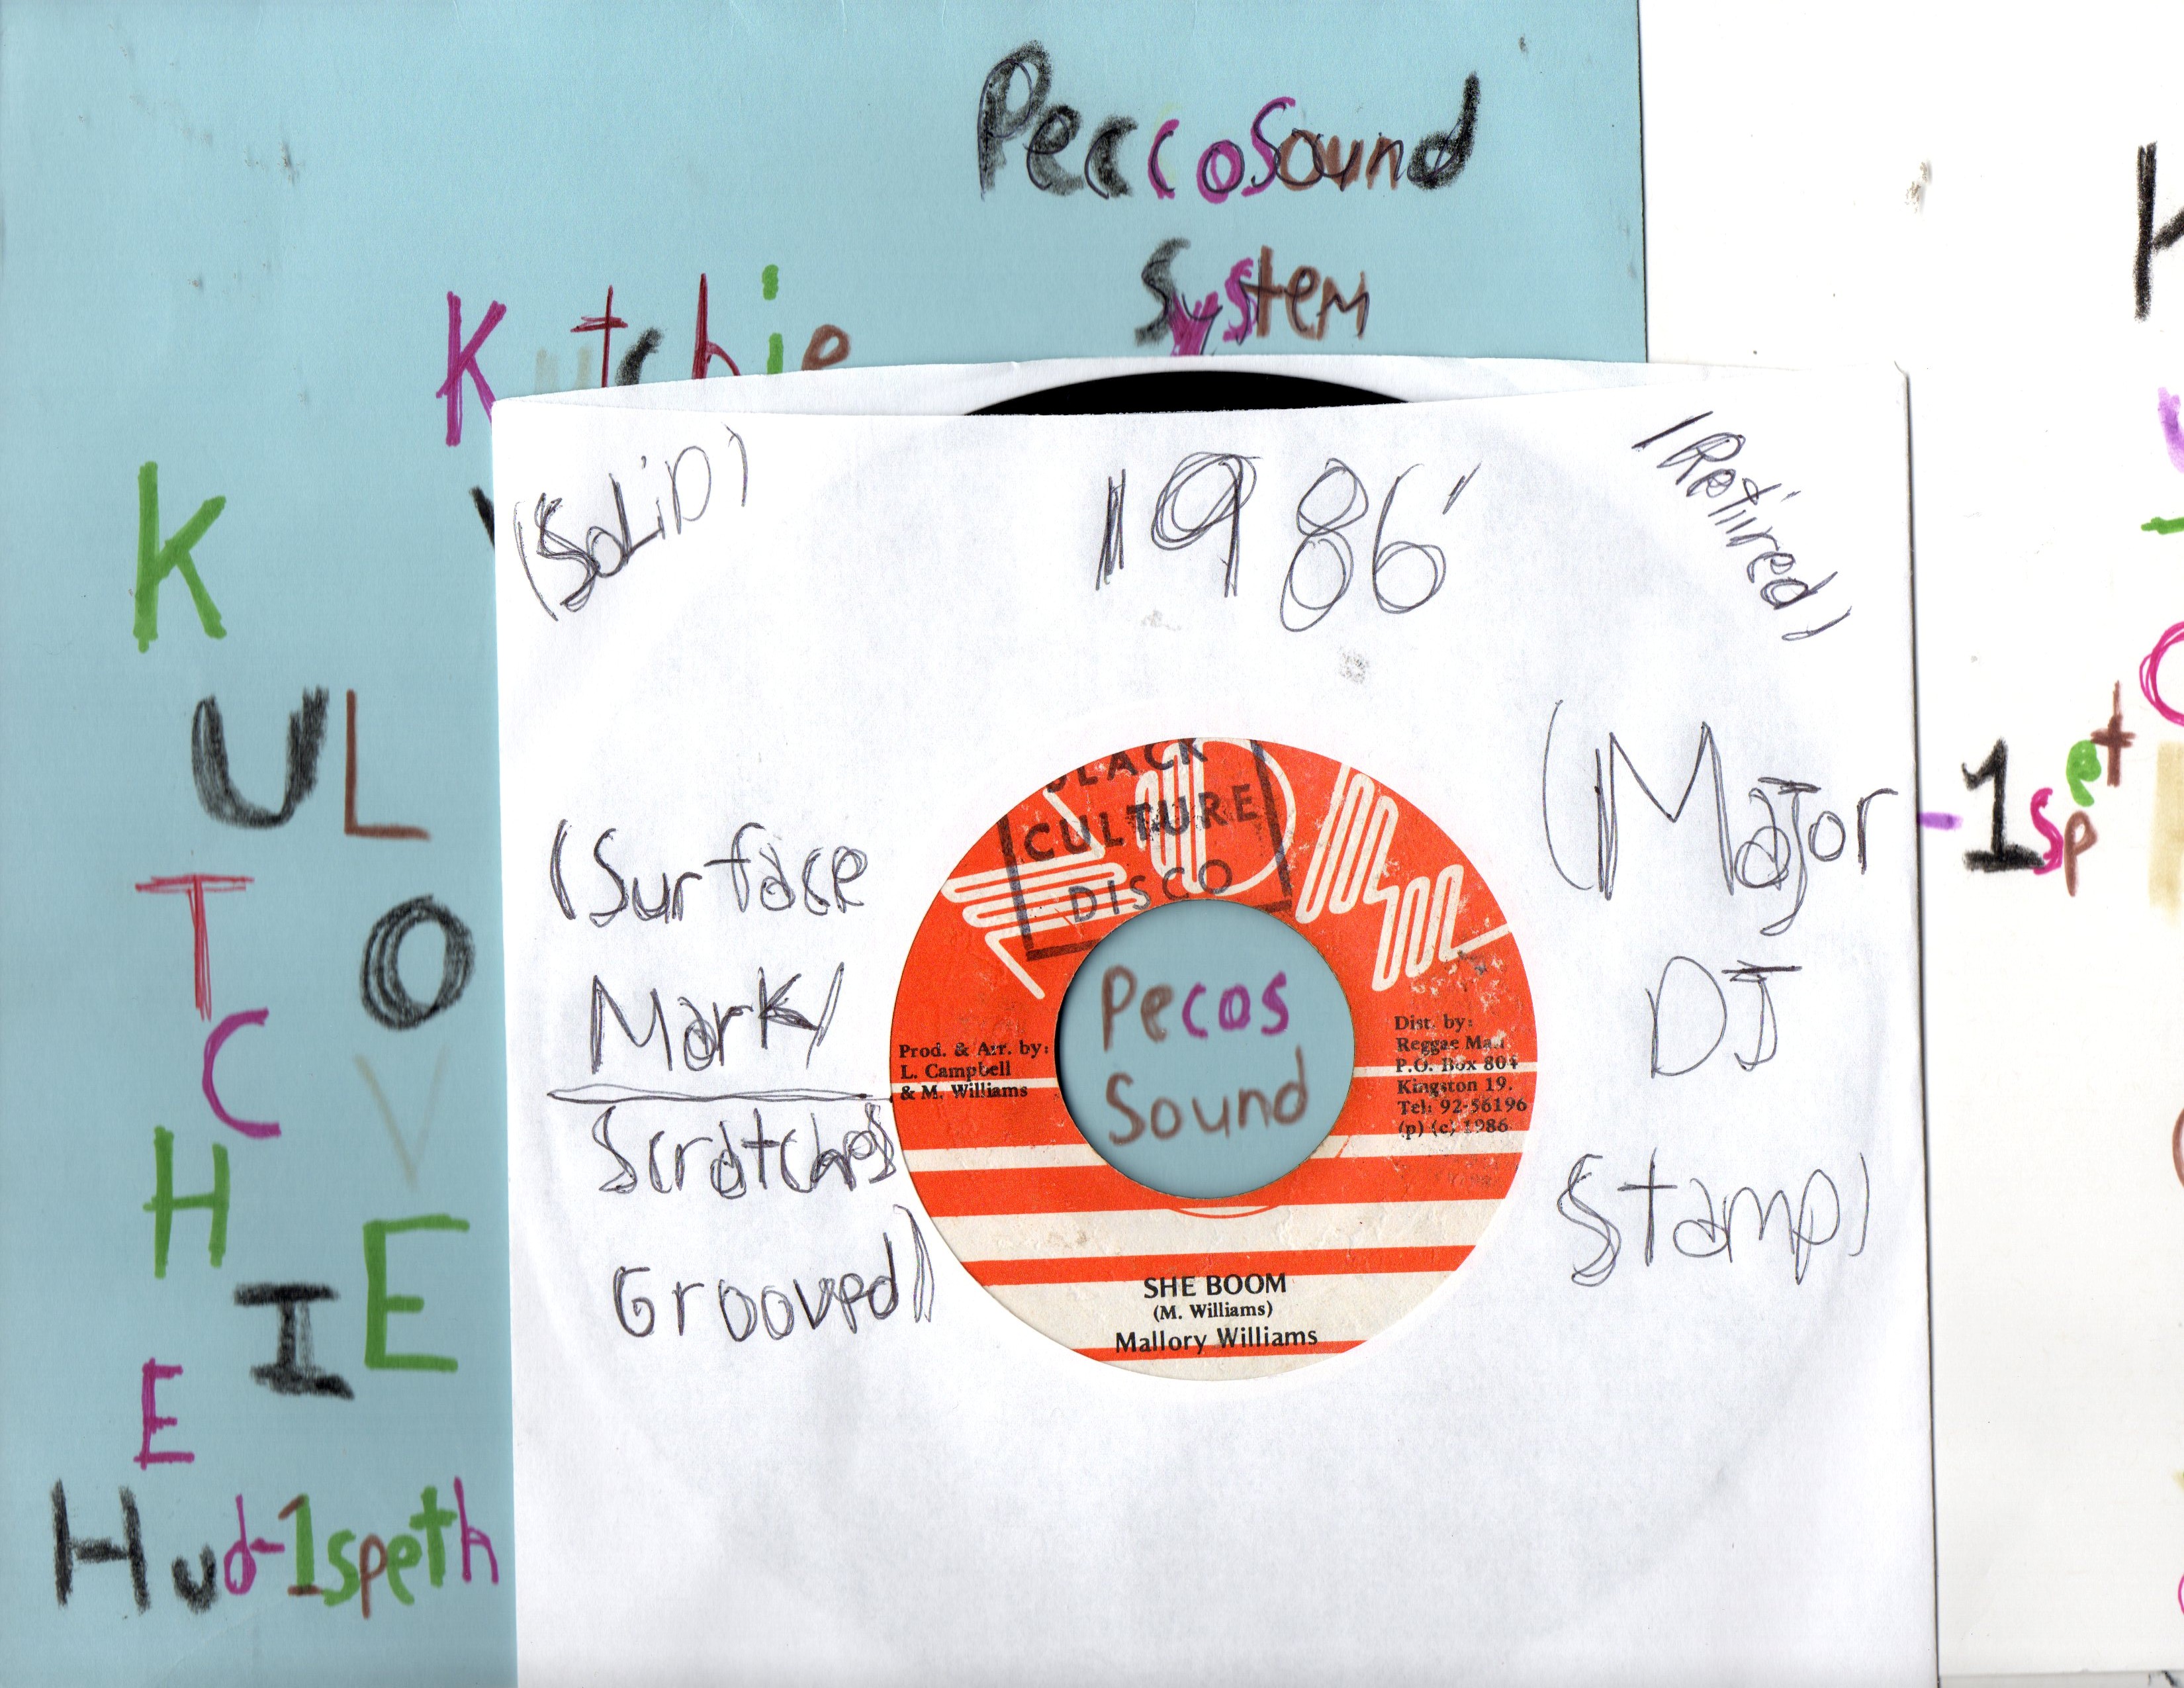 PeccoSound
System
Kutchie
K
U L
T O
C V
H E
I
E
Hud-1speth
(SoLiD)
1986'
(Retired)
(Surface
Mark/
Scratches
Grooved)
(Major
DJ
Stamp)
-1spet
BLACK
CULTURE
DISCO
Pecos
Sound
Prod. & Arr. by:
L. Campbell
& M. Williams
Dist. by:
Reggae Mall
P.O. Box 804
Kingston 19.
Tel: 92-56196
(p) (c) 1986
SHE BOOM
(M. Williams)
Mallory Williams